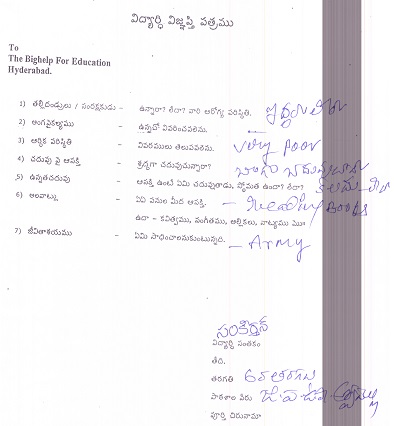 విద్యార్థి విజ్ఞప్తి పత్రము
To
The Bighelp For Education
Hyderabad.
1) తల్లిదండ్రులు / సంరక్షకుడు - ఉన్నారా? లేదా? వారి ఆరోగ్య పరిస్థితి.
2) అంగవైకల్యము - ఉన్నచో వివరించవలెను.
3) ఆర్థిక పరిస్థితి - వివరములు తెలుపవలెను. very poor
4) చదువు పై ఆసక్తి - శ్రద్ధగా చదువుచున్నారా?
5) ఉన్నతచదువు - ఆసక్తి ఉంటే ఏమి చదువుతాడు, స్తోమత ఉందా? లేదా?
6) అలవాట్లు - ఏ ఏ పనుల మీద ఆసక్తి. - Reading Books
ఉదా - కవిత్వము, సంగీతము, అల్లికలు, నాట్యము మొ॥
7) జీవితాశయము - ఏమి సాధించాలనుకుంటున్నది. - Army
సంకీర్తన
విద్యార్థి సంతకం
తేది.
తరగతి
పాఠశాల పేరు
పూర్తి చిరునామా